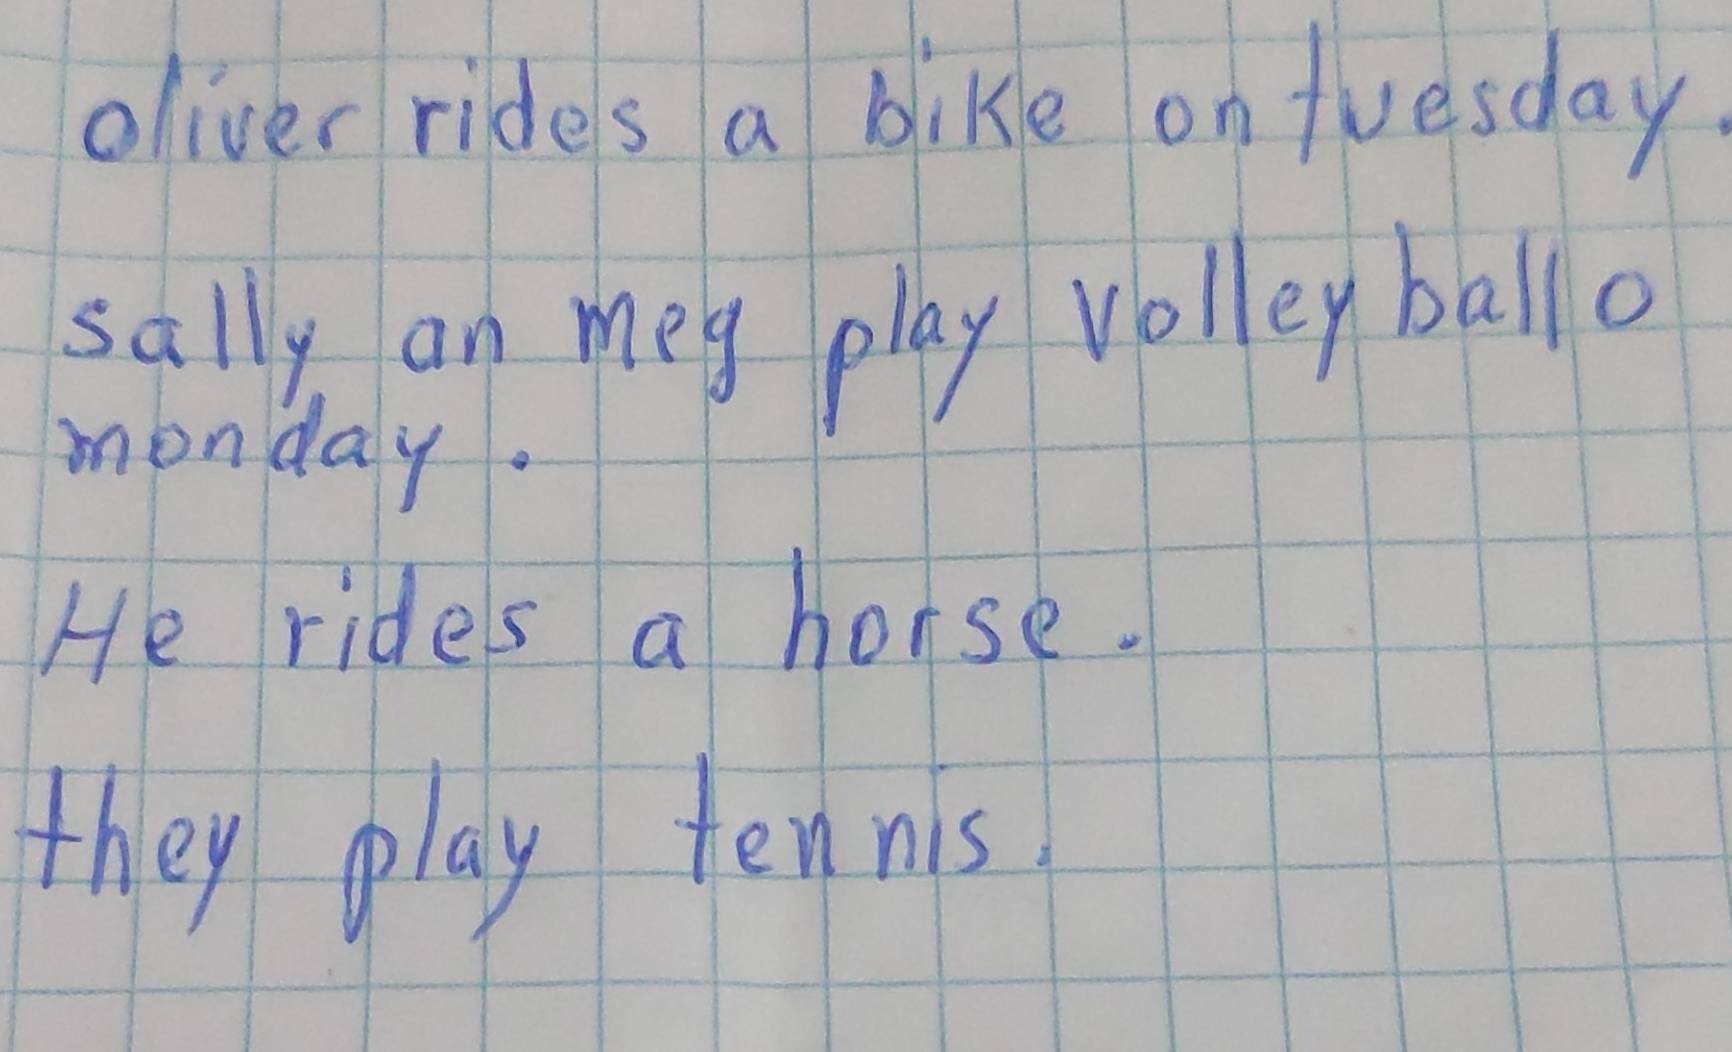 oliver rides a bike on tuesday.
sally an meg play volleyball o
monday.
He rides a horse.
they play tennis.